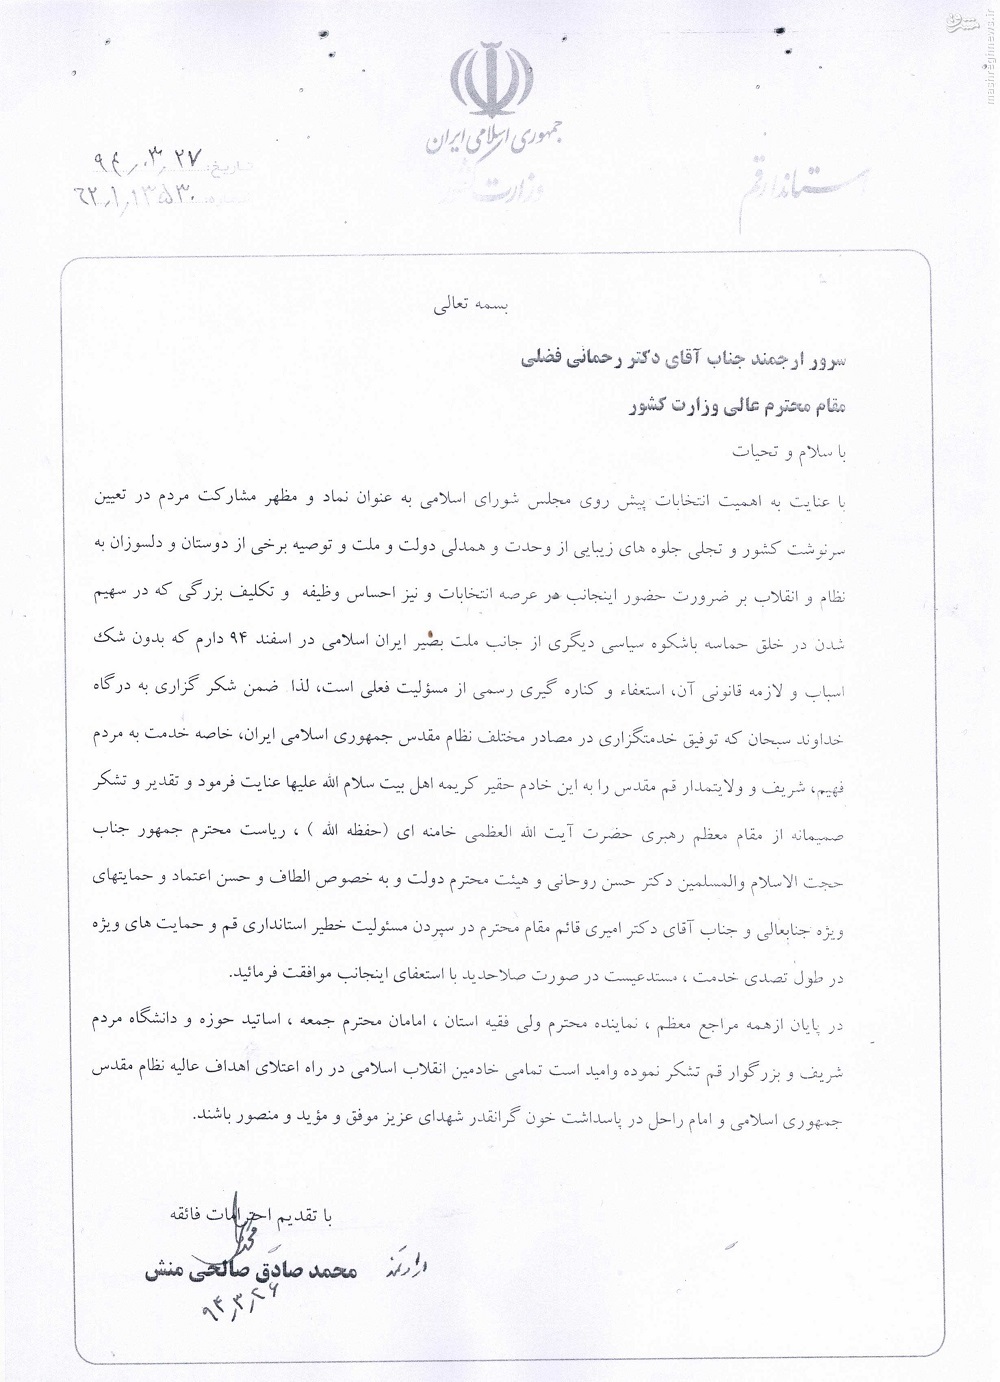 جمهوری اسلامی ایران
وزارت کشور
استاندار قم
تاریخ: ۹۴٫۰۳٫۲۷
شماره:
mashreghnews.ir
بسمه تعالی
سرور ارجمند جناب آقای دکتر رحمانی فضلی
مقام محترم عالی وزارت کشور
با سلام و تحیات
با عنایت به اهمیت انتخابات پیش روی مجلس شورای اسلامی به عنوان نماد و مظهر مشارکت مردم در تعیین
سرنوشت کشور و تجلی جلوه های زیبایی از وحدت و همدلی دولت و ملت و توصیه برخی از دوستان و دلسوزان به
نظام و انقلاب بر ضرورت حضور اینجانب در عرصه انتخابات و نیز احساس وظیفه و تکلیف بزرگی که در سهیم
شدن در خلق حماسه باشکوه سیاسی دیگری از جانب ملت بصیر ایران اسلامی در اسفند ۹۴ دارم که بدون شک
اسباب و لازمه قانونی آن، استعفاء و کناره گیری رسمی از مسؤلیت فعلی است، لذا ضمن شکر گزاری به درگاه
خداوند سبحان که توفیق خدمتگزاری در مصادر مختلف نظام مقدس جمهوری اسلامی ایران، خاصه خدمت به مردم
فهیم، شریف و ولایتمدار قم مقدس را به این خادم حقیر کریمه اهل بیت سلام الله علیها عنایت فرمود و تقدیر و تشکر
صمیمانه از مقام معظم رهبری حضرت آیت الله العظمی خامنه ای (حفظه الله ) ، ریاست محترم جمهور جناب
حجت الاسلام والمسلمین دکتر حسن روحانی و هیئت محترم دولت و به خصوص الطاف و حسن اعتماد و حمایتهای
ویژه جنابعالی و جناب آقای دکتر امیری قائم مقام محترم در سپردن مسئولیت خطیر استانداری قم و حمایت های ویژه
در طول تصدی خدمت ، مستدعیست در صورت صلاحدید با استعفای اینجانب موافقت فرمائید.
در پایان ازهمه مراجع معظم ، نماینده محترم ولی فقیه استان ، امامان محترم جمعه ، اساتید حوزه و دانشگاه مردم
شریف و بزرگوار قم تشکر نموده وامید است تمامی خادمین انقلاب اسلامی در راه اعتلای اهداف عالیه نظام مقدس
جمهوری اسلامی و امام راحل در پاسداشت خون گرانقدر شهدای عزیز موفق و مؤید و منصور باشند.
با تقدیم احترامات فائقه
ارادتمند
محمد صادق صالحی منش
۹۴٫۳٫۲۶